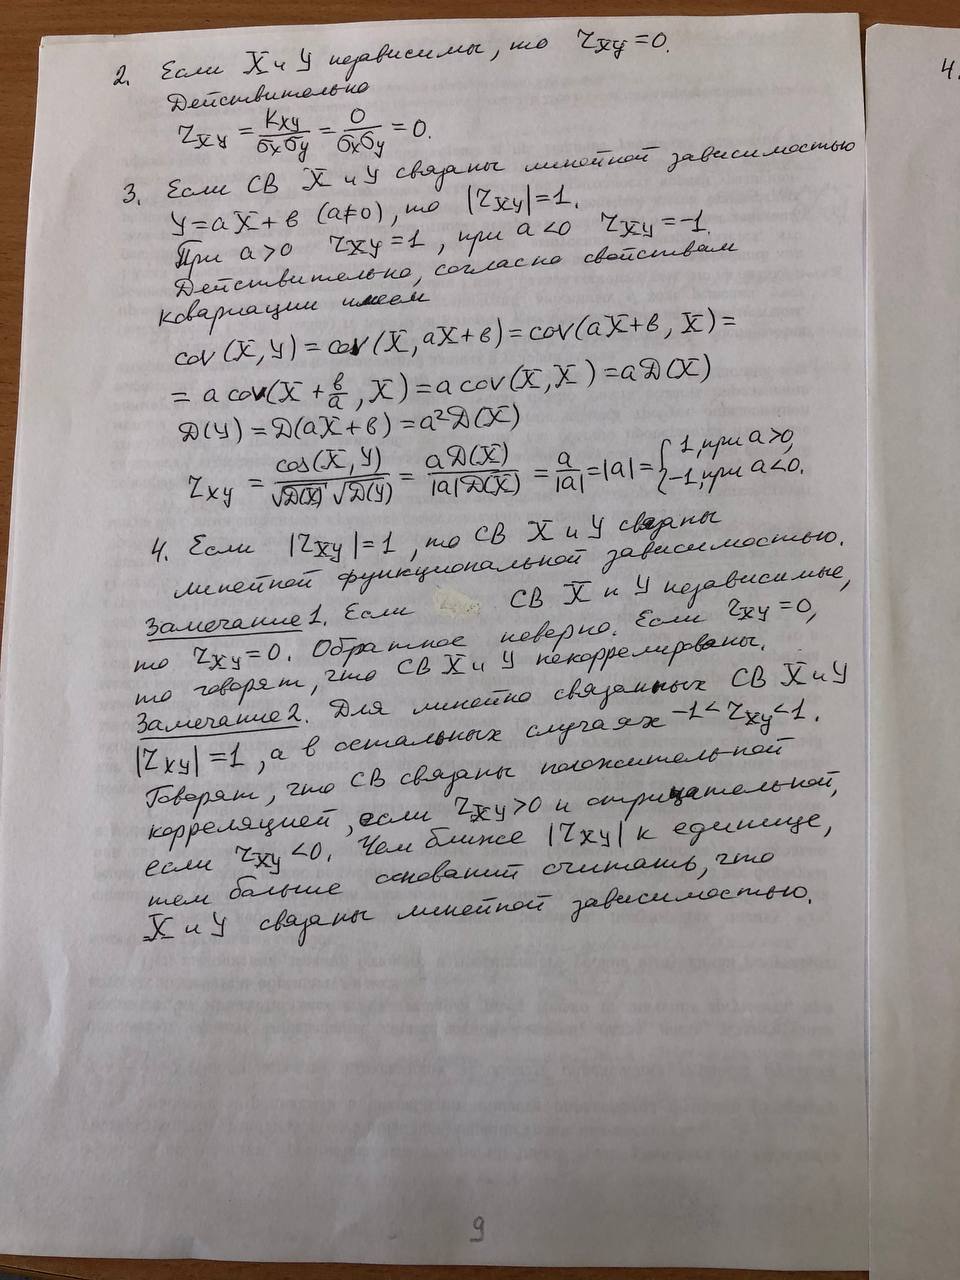 2. Если X и Y независимы, то r_XY = 0.
Действительно
r_XY = K_xy / (σ_x σ_y) = 0 / (σ_x σ_y) = 0.
3. Если СВ X и Y связаны линейной зависимостью
Y = aX + в (a≠0), то |r_XY| = 1.
При a>0 r_XY = 1, при a<0 r_XY = -1.
Действительно, согласно свойствам
ковариации имеем
cov(X, Y) = cov(X, aX+в) = cov(aX+в, X) =
= a cov(X + в/a, X) = a cov(X, X) = a D(X)
D(Y) = D(aX+в) = a² D(X)
r_xy = cos(X, Y) / (√D(X) √D(Y)) = a D(X) / (|a| D(X)) = a/|a| = |a| = { 1, при a>0, -1, при a<0.
4. Если |r_XY| = 1, то СВ X и Y связаны
линейной функциональной зависимостью.
Замечание 1. Если СВ X и Y независимые,
то r_XY = 0. Обратное неверно. Если r_XY = 0,
то говорят, что СВ X и Y некоррелированы.
Замечание 2. Для линейно связанных СВ X и Y
|r_XY| = 1, а в остальных случаях -1 < r_XY < 1.
Говорят, что СВ связаны положительной
корреляцией, если r_XY > 0 и отрицательной,
если r_XY < 0. Чем ближе |r_XY| к единице,
тем больше оснований считать, что
X и Y связаны линейной зависимостью.
9
4.